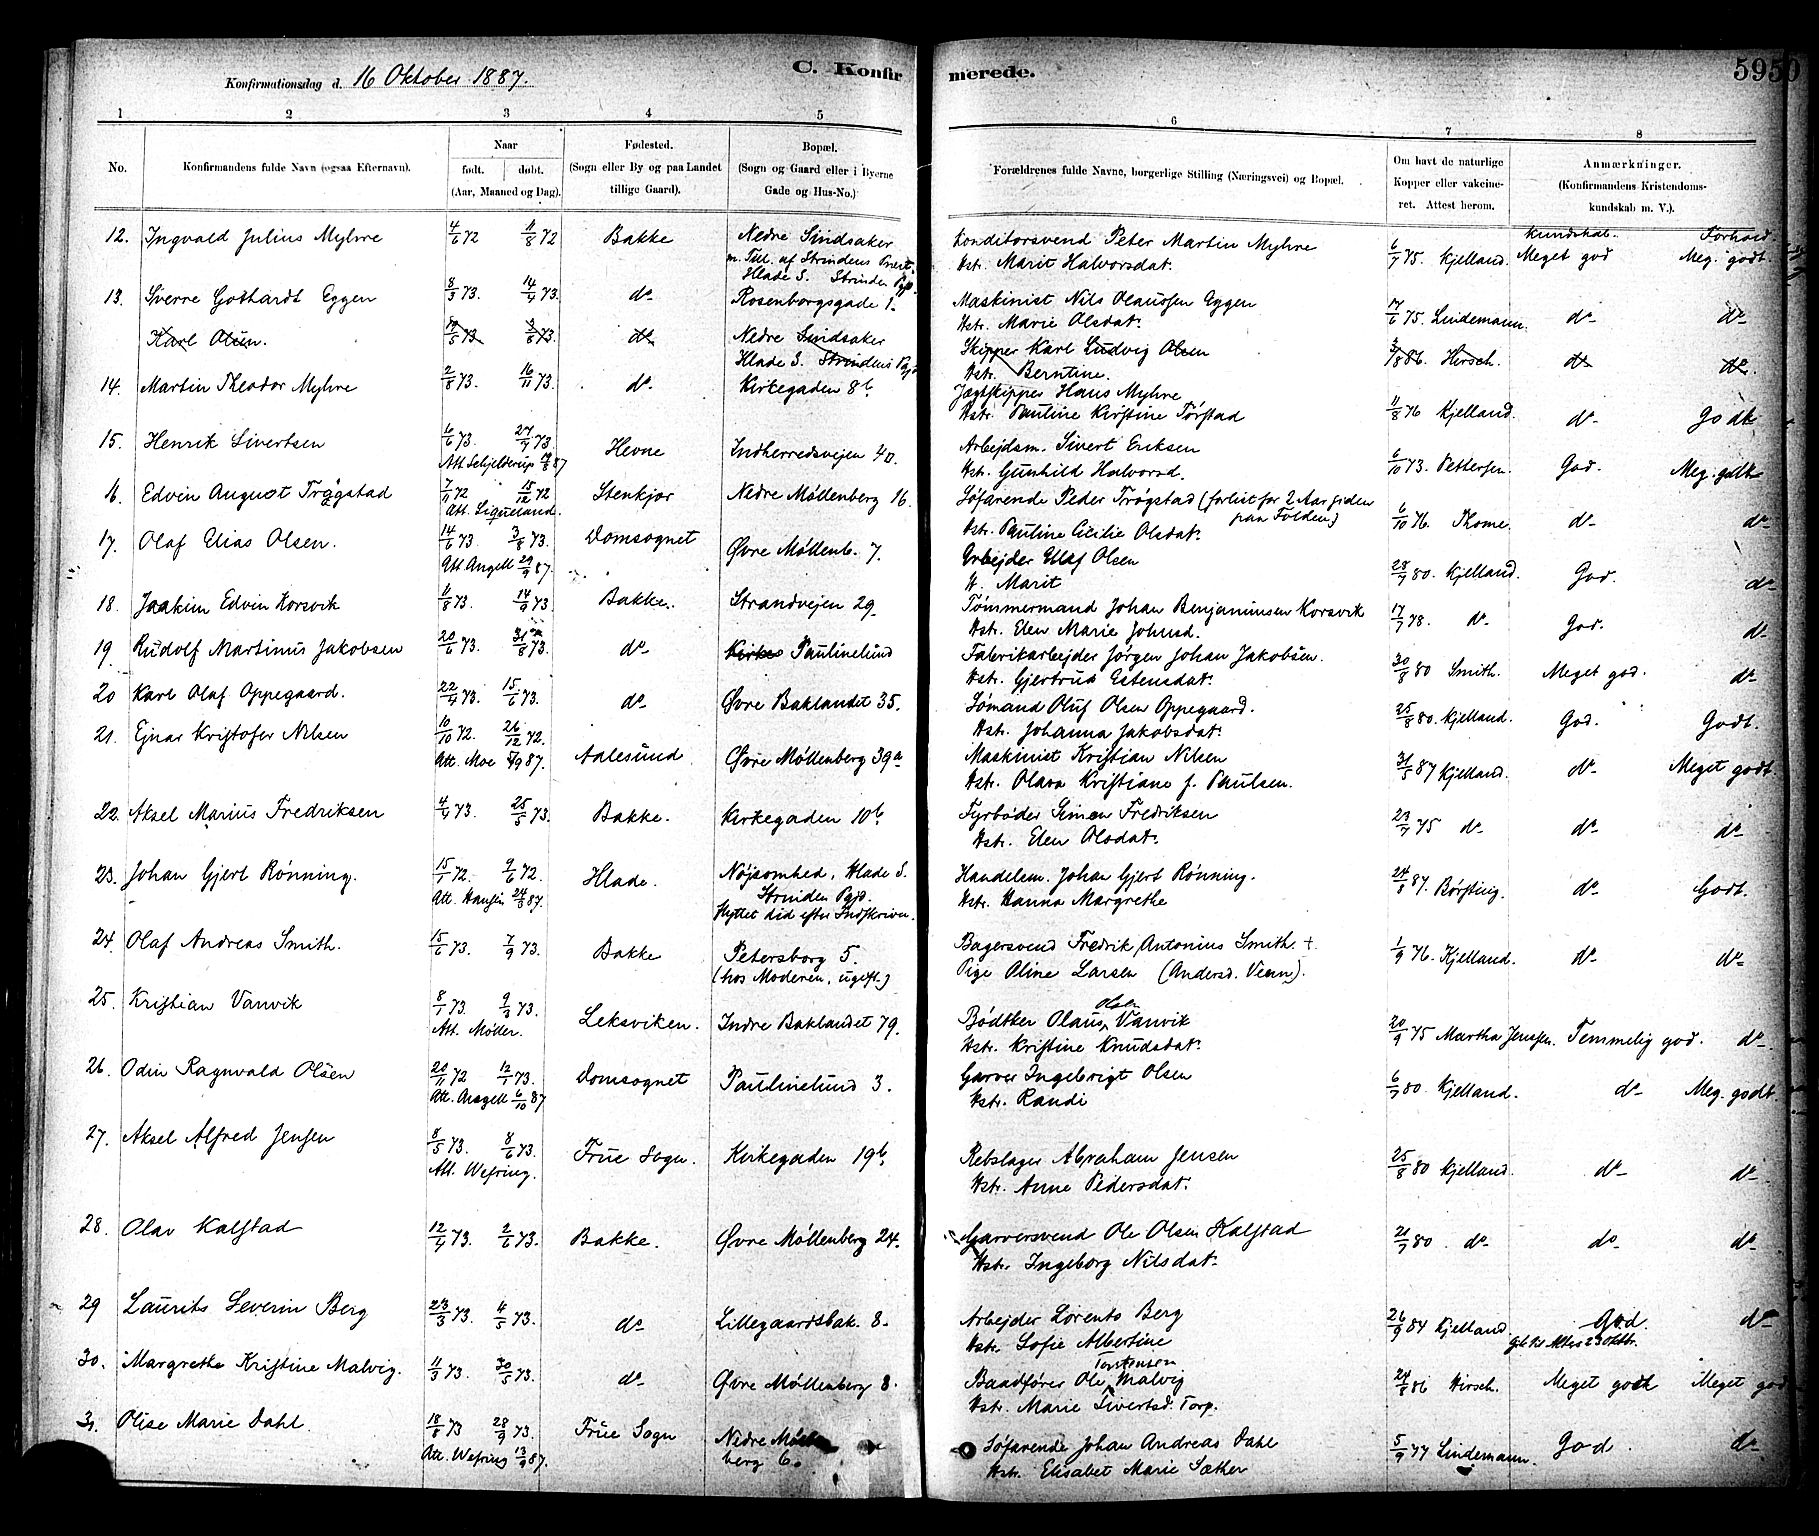 Konfirmationsdag d. 16 Oktober 1887.
C. Konfirmerede.
5950
1 2 3 4 5 6 7 8
No. Konfirmandens fulde Navn (ogsaa Efternavn). Naar født. døbt. (Aar, Maaned og Dag). Fødested. (Sogn eller By og paa Landet tillige Gaard). Bopæl. (Sogn og Gaard eller i Byerne Gade og Hus-No.) Forældrenes fulde Navne, borgerlige Stilling (Næringsvei) og Bopæl. Om havt de naturlige Kopper eller vakcineret. Attest herom. Anmærkninger. (Konfirmandens Kristendomskundskab m. V.).
Kundskab. Forhold.
12. Ingvald Julius Myhre 4/6 72 11/8 72 Bakke Nedre Sindsaker Konditorsvend Peter Martin Myhre 6/7 75. Kjelland. Meget god Meg. godt
m. Till. af Strindens Præst. Hstr. Marit Halvorsdat.
Hlade S. Strinden Pgjd.
13. Sverre Gothardt Eggen 8/3 73. 14/4 73. do Rosenborgsgade 1. Maskinist Nils Olaussen Eggen 17/6 75. Lindemann. do do
Hstr. Marie Olsdat.
Karl Olsen. 19/5 73 3/8 73. do Nedre Sindsaker Skipper Karl Ludvig Olsen 3/8 86. Hirsch. do do
Hlade S. Strindens Pgjd Hstr. Berntine.
14. Martin Theodor Myhre 2/8 73. 16/11 73. do Kirkegaden 8b Jægtskipper Hans Myhre 11/8 76 Kjelland. do Godt
Hstr. Pauline Kirstine Tørstad
15. Henrik Sivertsen 6/6 73. 27/7 73 Hevne Indherredsvejen 40. Arbejdsm. Sivert Eriksen 6/10 73. Pettersen God. Meg. godt
Att. Schjelderup 19/8 87 Hstr. Gunhild Halvorsd.
16. Edvin August Trøgstad 7/11 72 15/12 72 Stenkjær Nedre Møllenberg 16. Søfarende Peder Trøgstad (forlist for 2 Aar siden paa Folden) 6/10 76. Thome. do do
Att. Sigueland. Hstr. Pauline Cicilie Olsdat.
17. Olaf Elias Olsen. 14/6 73. 3/8 73. Domsognet Øvre Møllenb. 7. Arbejder Ellaf Olsen 28/7 80. Kjelland. God. do
Att. Angell 29/9 87. H. Marit
18. Joakim Edvin Korsvik 11/8 73. 14/9 73. Bakke. Strandvejen 29. Tømmermand Johan Benjaminsen Korsvik 17/7 78. do God. do
Hstr. Elen Marie Johnsd.
19. Rudolf Martinus Jakobsen 20/6 73. 31/8 73. do Kirke Paulinelund Fabrikarbejder Jørgen Johan Jakobsen. 30/8 80 Smith. Meget god. do
Hstr. Gjertrud Estensdat.
20 Karl Olaf Oppegaard. 22/4 73. 15/6 73. do Øvre Baklandet 35. Sømand Oluf Olsen Oppegaard. 25/8 80. Kjelland. God. Godt.
Hstr. Johanna Jakobsdat.
21. Ejnar Kristofer Nilsen 10/10 72. 26/12 72. Aalesund Øvre Møllenberg 39a Maskinist Kristian Nilsen 31/5 87 Kjelland. do Meget godt.
Att. Moe 7/9 87. Hstr. Olava Kristiane f. Paulsen.
22. Aksel Marius Fredriksen 4/4 73. 25/5 73. Bakke. Kirkegaden 10b Fyrbøder Simon Fredriksen 23/7 75 do do do
Hstr. Elen Olsdat.
23. Johan Gjert Rønning. 15/1 72. 9/6 72. Hlade. Nøjsomhed, Hlade S. Handelsm. Johan Gjert Rønning. 24/8 87. Børsting. do Godt.
Att. Hansen 24/8 87. Strinden Pgjd. Hstr. Hanna Margrethe
Flyttet did efter Indskriven.
24. Olaf Andreas Smith. 15/6 73. 7/9 73. Bakke Petersborg 5. Bagersvend Fredrik Antonius Smith. + 1/9 76. Kjelland. do do
(hos Moderen, ugift.) Pige Oline Larsen (Andersd. Veen).
25. Kristian Vanvik 8/1 73. 9/3 73. Leksviken. Indre Baklandet 79. Bødtker Olaus Olsen Vanvik 20/9 75 Martha Jenssen. Temmelig god. do
Att. Møder. Hstr. Kristine Knudsdat.
26. Odin Ragnvald Olsen 20/11 72 12/1 73. Domsognet Paulinelund 3. Garver Ingebrigt Olsen 6/7 80 Kjelland. do Meg. godt.
Att. Angell 6/10 87 Hstr. Randi
27. Aksel Alfred Jensen 8/5 73. 8/6 73. Frue Sogn. Kirkegaden 19b Rebslager Abraham Jensen 25/8 80 Kjelland. do do
Att. Wefring. Hstr. Anne Pedersdat.
28. Olav Kalstad 12/4 73. 2/6 73. Bakke. Øvre Møllenberg 24. Garversvend Ole Olsen Kalstad 21/7 80. do do do
Hstr. Ingeborg Nilsdat.
29 Laurits Severin Berg 23/3 73. 4/5 73. do Lillegaardsbak. 8. Arbejder Lorents Berg 26/9 84 Kjelland. God. do
Hstr. Sofie Albertine 23 Oktbr.
30. Margrethe Kristine Malvig. 11/3 73. 30/5 73. do Øvre Møllenberg 8. Baadfører Ole Torstensen Malvig 24/8 86 Hirsch. Meget godt Meget god
Hstr. Marie Sivertsd. Torp.
31. Olise Marie Dahl. 18/8 73 28/9 73. Frue Sogn Nedre Møllenberg 6. Søfarende Johan Andreas Dahl 5/9 77 Lindemann. God. do
Att. Wefring 13/9 87. Hstr. Elisabet Marie Sæther